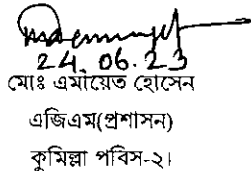 24.06.23
মোঃ এমায়েত হোসেন
এজিএম(প্রশাসন)
কুমিল্লা পবিস-২।